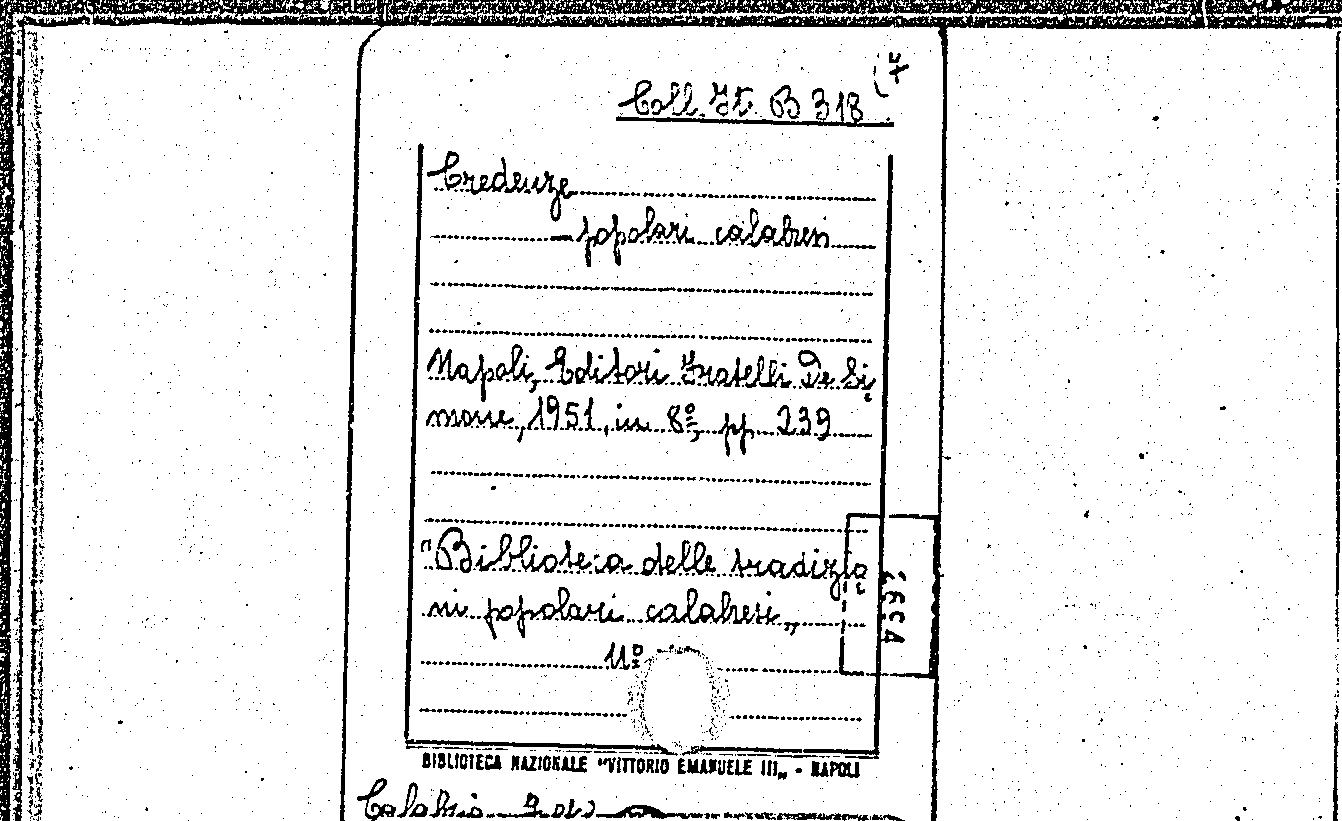 Coll. It. B 318
Credenze
popolari calabresi
Napoli, Editori Fratelli De Si-
mone, 1951, in 8º, pp. 239
"Biblioteca delle tradizio-
ni popolari calabresi„
Nº
BIBLIOTECA NAZIONALE "VITTORIO EMANUELE III„ - NAPOLI
Calabria